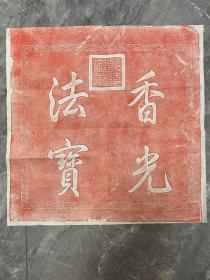 香光
法寶